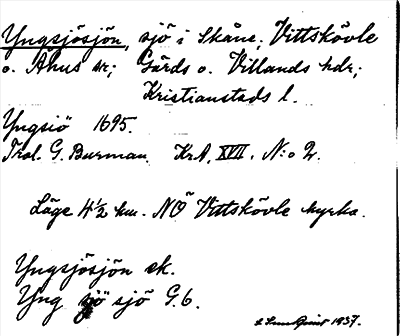 Yngsjösjön, sjö i Skåne; Vittskövle
o. Åhus sr; Gärds o. Villands hdr;
Kristianstads l.
Yngsiö 1695.
Trol. G. Burman. KrA, XVII. N:o 2.
Läge 4½ km. NÖ Vittskövle kyrka.
Yngsjösjön ek.
Yng sjö sjö G.6.
1937.